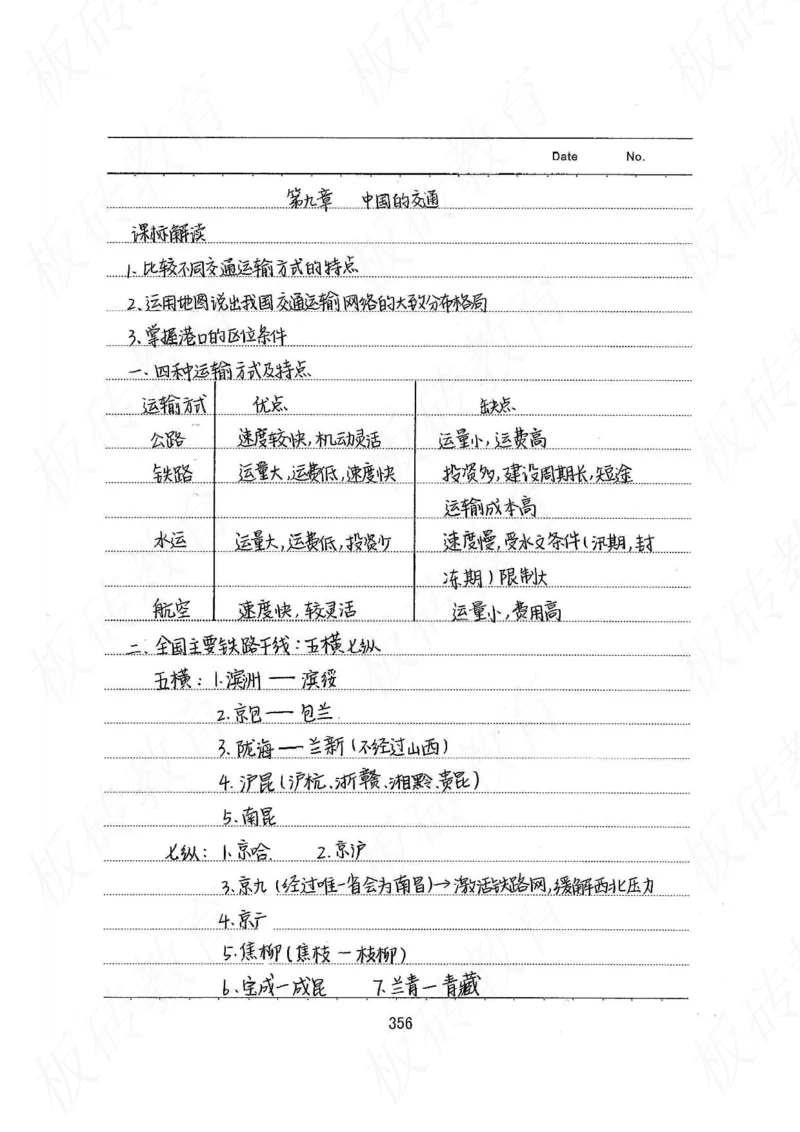 Date No.
第九章 中国的交通
课标解读
1、比较不同交通运输方式的特点
2、运用地图说出我国交通运输网络的大致分布格局
3、掌握港口的区位条件
一、四种运输方式及特点
运输方式 优点 缺点
公路 速度较快,机动灵活 运量小,运费高
铁路 运量大,运费低,速度快 投资多,建设周期长,短途
运输成本高
水运 运量大,运费低,投资少 速度慢,受水文条件(汛期,封
冻期)限制大
航空 速度快,较灵活 运量小,费用高
二、全国主要铁路干线:五横七纵
五横:1.滨洲——滨绥
2.京包——包兰
3.陇海——兰新(不经过山西)
4.沪昆(沪杭、浙赣、湘黔、贵昆)
5.南昆
七纵:1.京哈 2.京沪
3.京九(经过唯一省会为南昌)→激活铁路网,缓解西北压力
4.京广
5.焦柳(焦枝一枝柳)
6.宝成一成昆 7.兰青一青藏
356
板砖教育